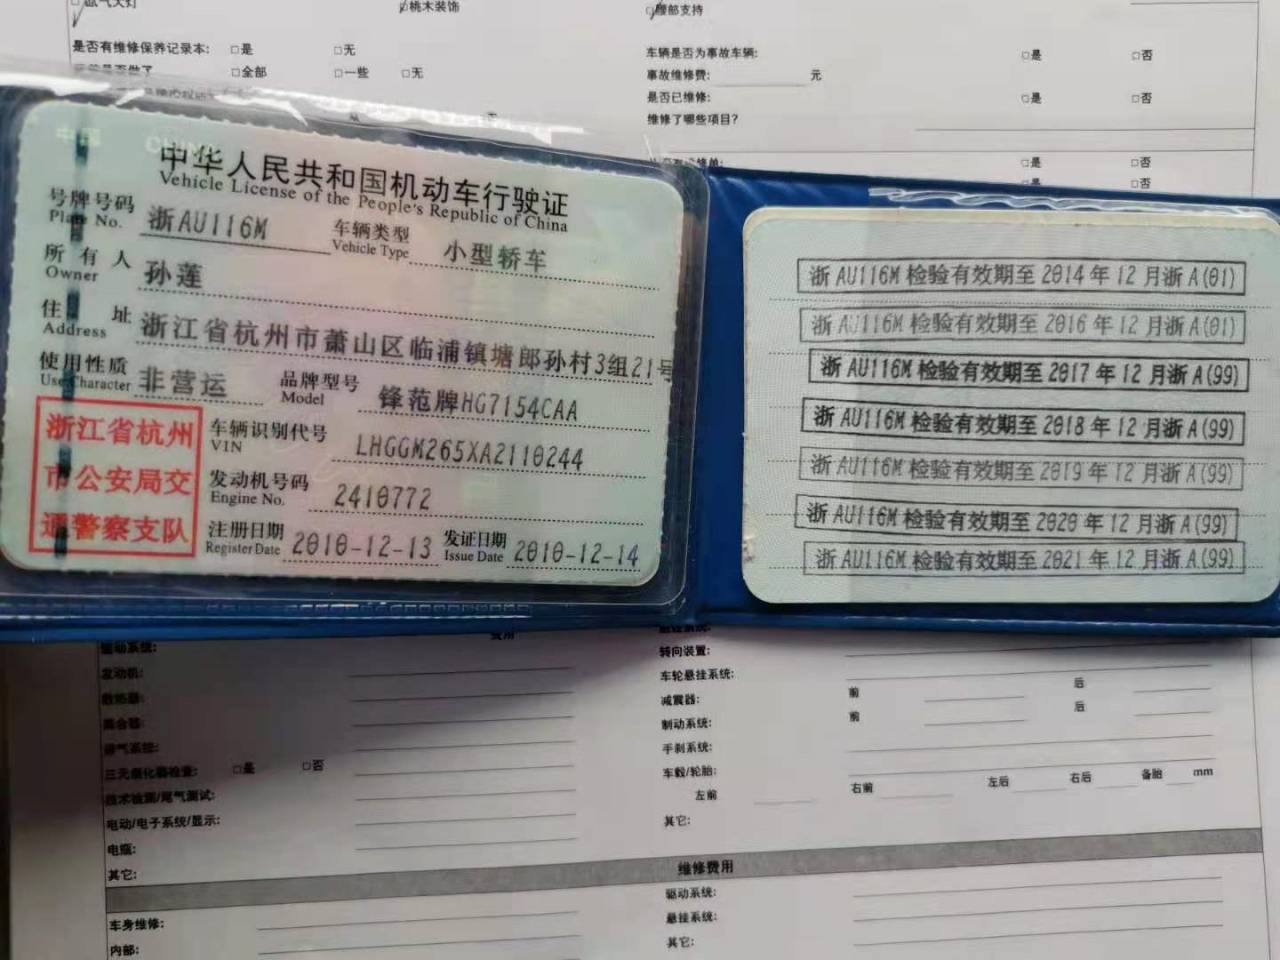 氙气大灯
桃木装饰
腰部支持
是否有维修保养记录本: □是 □无
车辆是否为事故车辆: □是 □否
□全部 □一些 □无
事故维修费: 元
是否已维修: □是 □否
维修了哪些项目?
□是 □否
□是 □否
中国 CHINA
中华人民共和国机动车行驶证
Vehicle License of the People's Republic of China
号牌号码 浙AU116M 车辆类型 小型轿车
Plate No. Vehicle Type
所有人 孙莲
Owner
住址 浙江省杭州市萧山区临浦镇塘郎孙村3组21号
Address
使用性质 非营运 品牌型号 锋范牌HG7154CAA
Use Character Model
浙江省杭州市公安局交通警察支队
车辆识别代号 LHGGM265XA2110244
VIN
发动机号码 2410772
Engine No.
注册日期 2010-12-13 发证日期 2010-12-14
Register Date Issue Date
浙AU116M检验有效期至2014年12月浙A(01)
浙AU116M检验有效期至2016年12月浙A(01)
浙AU116M检验有效期至2017年12月浙A(99)
浙AU116M检验有效期至2018年12月浙A(99)
浙AU116M检验有效期至2019年12月浙A(99)
浙AU116M检验有效期至2020年12月浙A(99)
浙AU116M检验有效期至2021年12月浙A(99)
费用
驱动系统:
转向装置:
发动机:
车轮悬挂系统:
散热器:
减震器: 前 后
离合器:
制动系统: 前 后
排气系统:
手刹系统:
三元催化器检查: □是 □否
车毂/轮胎:
左前 右前 左后 右后 备胎 mm
技术检测/尾气测试:
电动/电子系统/显示:
其它:
电瓶:
其它:
维修费用
驱动系统:
车身维修:
悬挂系统:
内部:
其它: